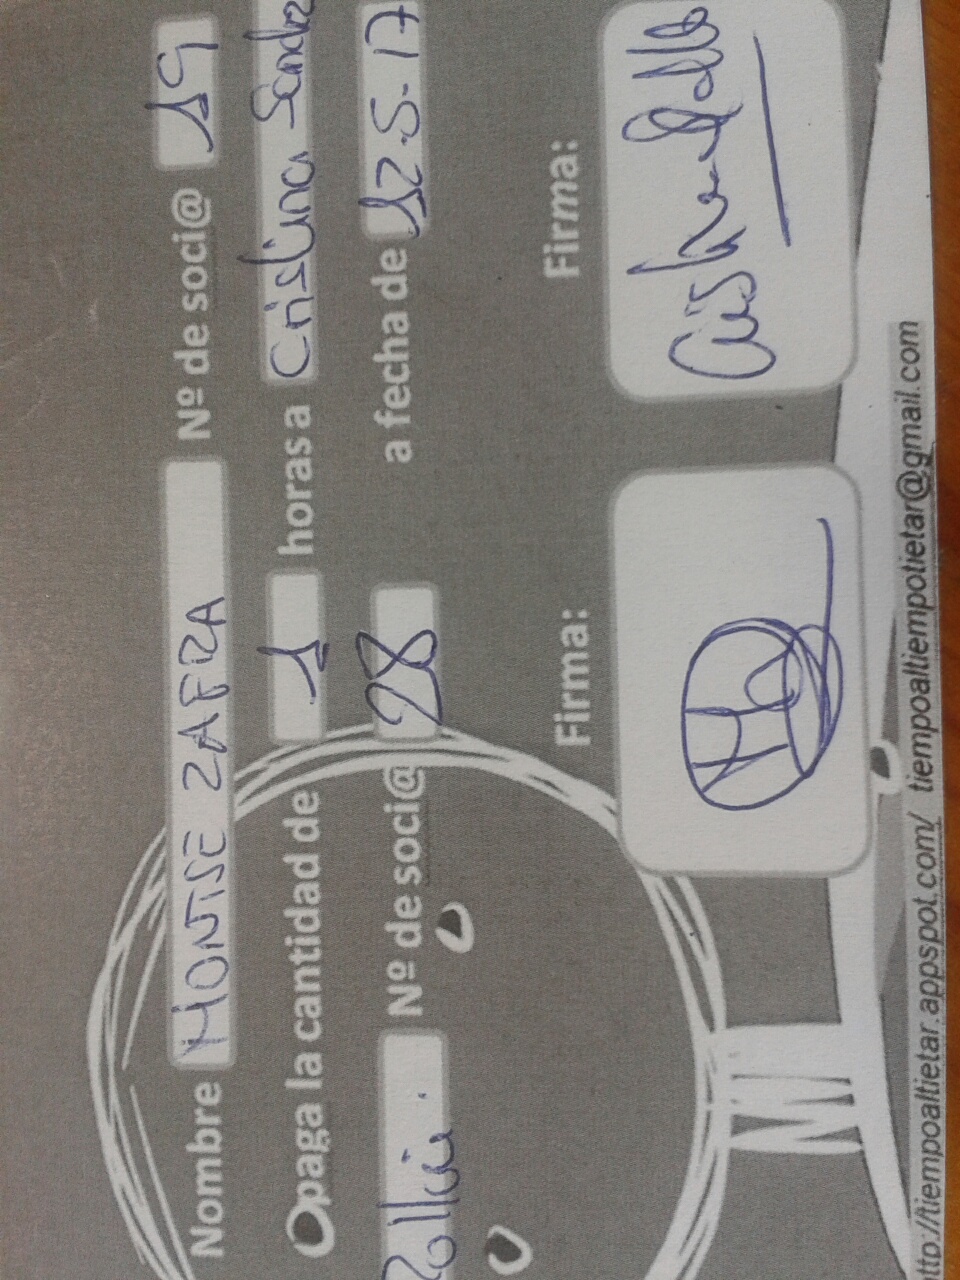 Nombre MONTSE ZAFRA Nº de soci@ 19
paga la cantidad de 1 horas a Cristina
Nº de soci@ 98 a fecha de 12-5-17
Firma: Firma:
ttp://tiempoaltietar.appspot.com/ tiempoaltiempotietar@gmail.com